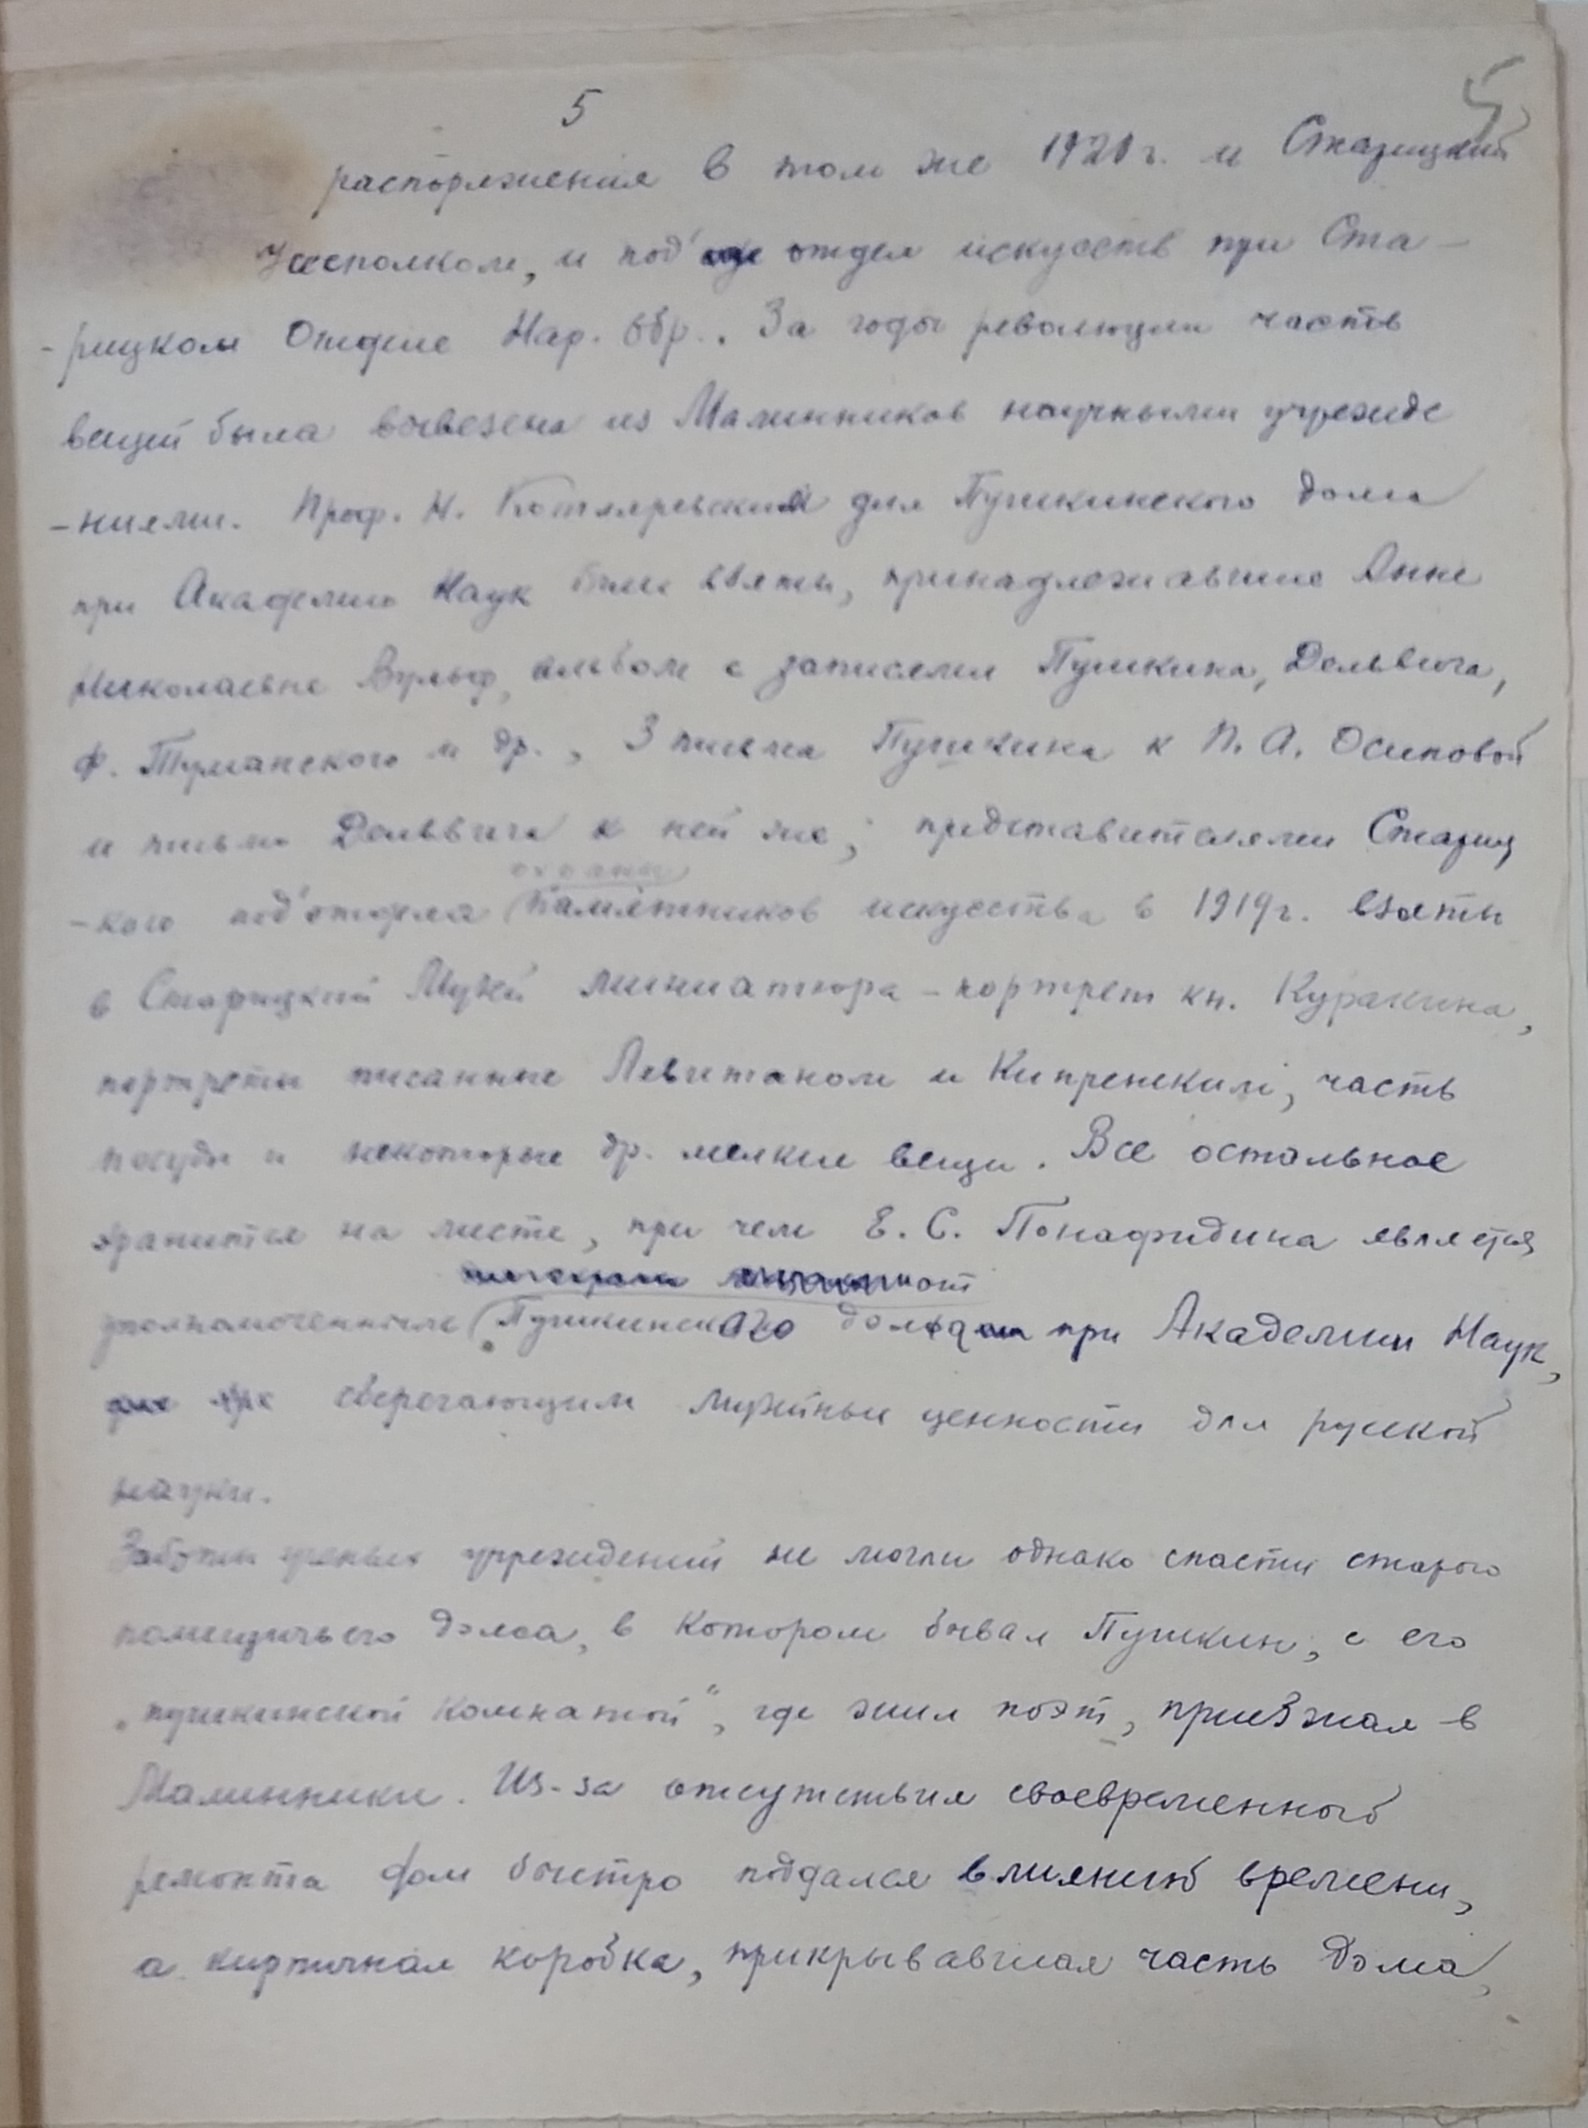 5
5
распоряжения в том же 1920 г. и Старицкий
Уисполком, и под' отдел искусств при Ста-
-рицком Отделе Нар. Обр.. За годы революции часть
вещей была вывезена из Малинников научными учрежде
-ниями. Проф. Н. Котляревский для Пушкинского дома
при Академии Наук были взяты, принадлежавшие Анне
Николаевне Вульф, альбом с записями Пушкина, Дельвига,
Ф. Туманского и др., 3 письма Пушкина к П. А. Осиповой
и письмо Дельвига к ней же; представителями Стариц
охраны
-кого под'отдела памятников искусства в 1919 г. взяты
в Старицкий Музей миниатюра - портрет кн. Куракина,
портреты писанные Левитаном и Кипренским, часть
посуды и некоторые др. мелкие вещи. Все остальное
хранится на месте, при чем Е. С. Понафидина является
от
уполномоченным Пушкинского дома при Академии Наук,
сберегающим музейные ценности для русской
науки.
Заботы ученых учреждений не могли однако спасти старого
помещичьего дома, в котором бывал Пушкин, с его
„пушкинской комнатой", где жил поэт, приезжая в
Малинники. Из-за отсутствия своевременного
ремонта дом быстро поддался влиянию времени,
а кирпичная коробка, прикрывавшая часть дома,